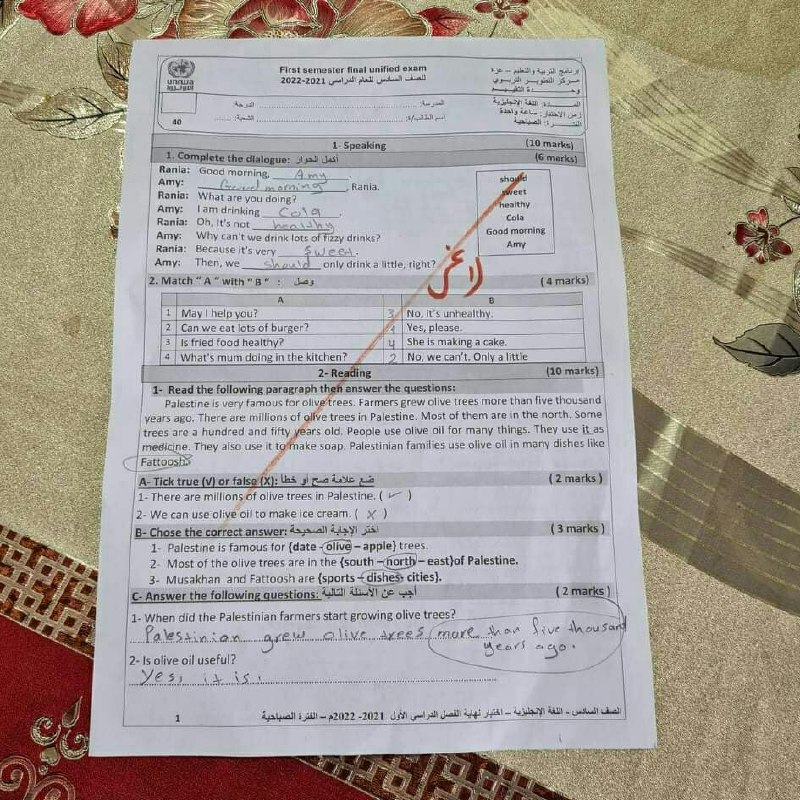 First semester final unified exam
للصف السادس للعام الدراسي 2021-2022
برنامج التربية والتعليم – غزة
مركز التطوير التربوي
وحدة التقييم
unrwa
الأونروا
المدرسة:
الدرجة:
اسم الطالب/ة:
الشعبة:
المادة: اللغة الإنجليزية
زمن الاختبار: ساعة واحدة
الفترة: الصباحية
40
1- Speaking (10 marks)
1. Complete the dialogue: أكمل الحوار (6 marks)
Rania: Good morning, Amy
Amy: Good morning, Rania.
Rania: What are you doing?
Amy: I am drinking Cola.
Rania: Oh, it's not healthy
Amy: Why can't we drink lots of fizzy drinks?
Rania: Because it's very sweet.
Amy: Then, we should only drink a little, right?
should
sweet
healthy
Cola
Good morning
Amy
2. Match " A " with " B " : وصل (4 marks)
A B
1 May I help you? 3 No, it's unhealthy.
2 Can we eat lots of burger? 1 Yes, please.
3 Is fried food healthy? 4 She is making a cake.
4 What's mum doing in the kitchen? 2 No, we can't. Only a little
2- Reading (10 marks)
1- Read the following paragraph then answer the questions:
Palestine is very famous for olive trees. Farmers grew olive trees more than five thousand
years ago. There are millions of olive trees in Palestine. Most of them are in the north. Some
trees are a hundred and fifty years old. People use olive oil for many things. They use it as
medicine. They also use it to make soap. Palestinian families use olive oil in many dishes like
Fattoosh.
A- Tick true (√) or false (X): ضع علامة صح أو خطأ (2 marks)
1- There are millions of olive trees in Palestine. ( ✓ )
2- We can use olive oil to make ice cream. ( X )
B- Chose the correct answer: اختر الإجابة الصحيحة (3 marks)
1- Palestine is famous for {date - olive – apple} trees.
2. Most of the olive trees are in the {south – north – east}of Palestine.
3- Musakhan and Fattoosh are {sports – dishes- cities}.
C- Answer the following questions: أجب عن الأسئلة التالية (2 marks)
1- When did the Palestinian farmers start growing olive trees?
Palestinian grew olive trees more than five thousand
years ago.
2- Is olive oil useful?
Yes, it is.
1
الصف السادس – اللغة الإنجليزية – اختبار نهاية الفصل الدراسي الأول 2021- 2022م – الفترة الصباحية